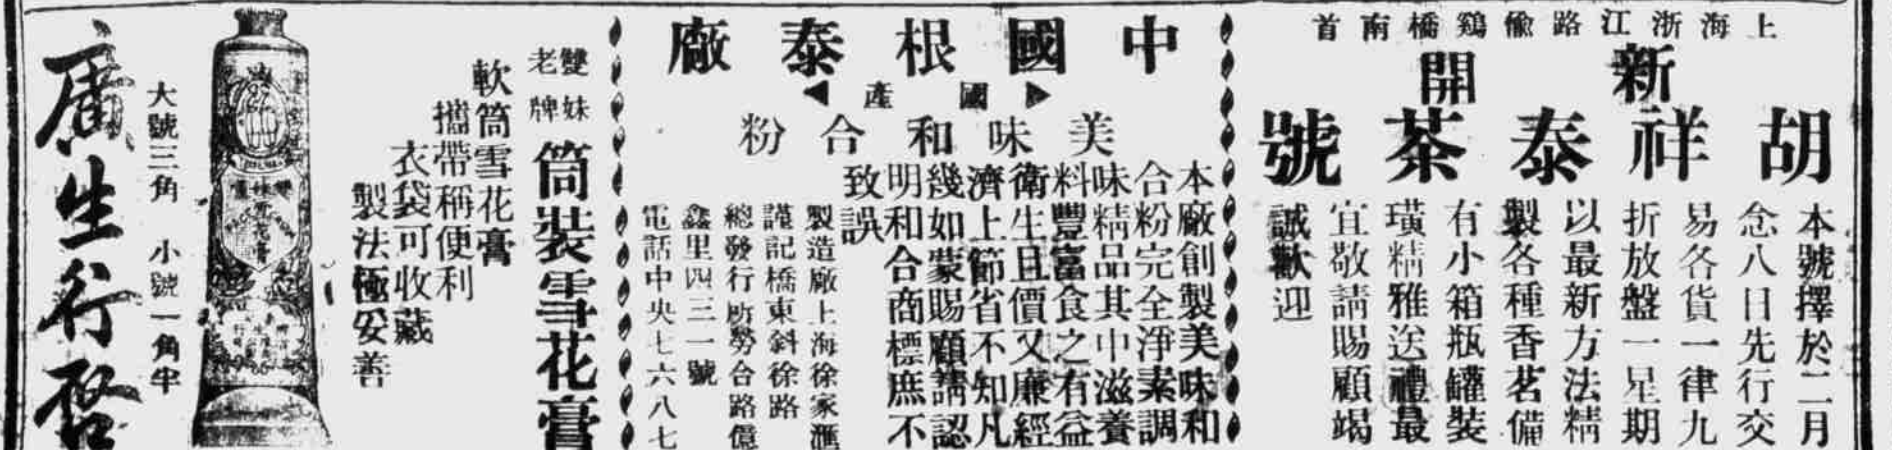 上海浙江路偸鷄橋南首
新開
胡祥泰茶號
本號擇於二月
念八日先行交
易各貨一律九
折放盤一星期
以最新方法精
製各種香茗備
有小箱瓶罐裝
璜精雅送禮最
宜敬請賜顧竭
誠歡迎
中國根泰廠
國產
美味和合粉
本廠創製美味和
合粉完全淨素調
味精品其中滋養
料豐富食之有益
衛生且價又廉經
濟上節省不知凡
幾如蒙賜顧請認
明和合商標庶不
致誤
製造廠上海徐家滙
謹記橋東斜徐路
總發行所勞合路億
鑫里四三一號
電話中央七六八七
雙妹
老牌
筒裝雪花膏
軟筒雪花膏
攜帶稱便利
衣袋可收藏
製法極妥善
雙妹
雪花膏
大號三角 小號一角半
廣生行啓